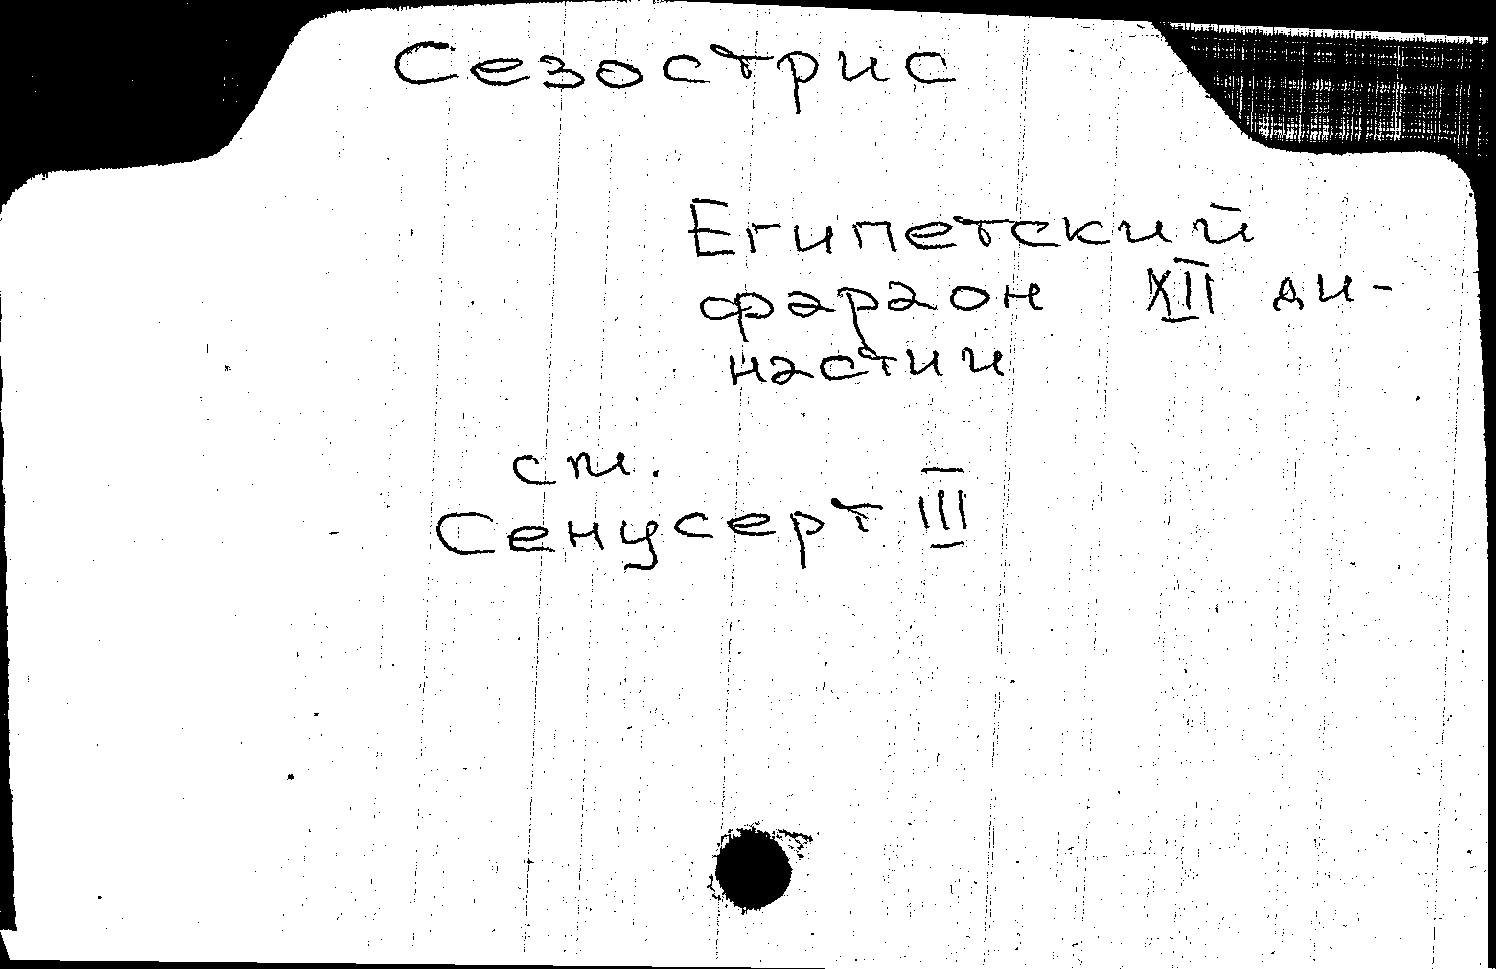 Сезострис
Египетский
фараон XII ди-
настии
см.
Сенусерт III